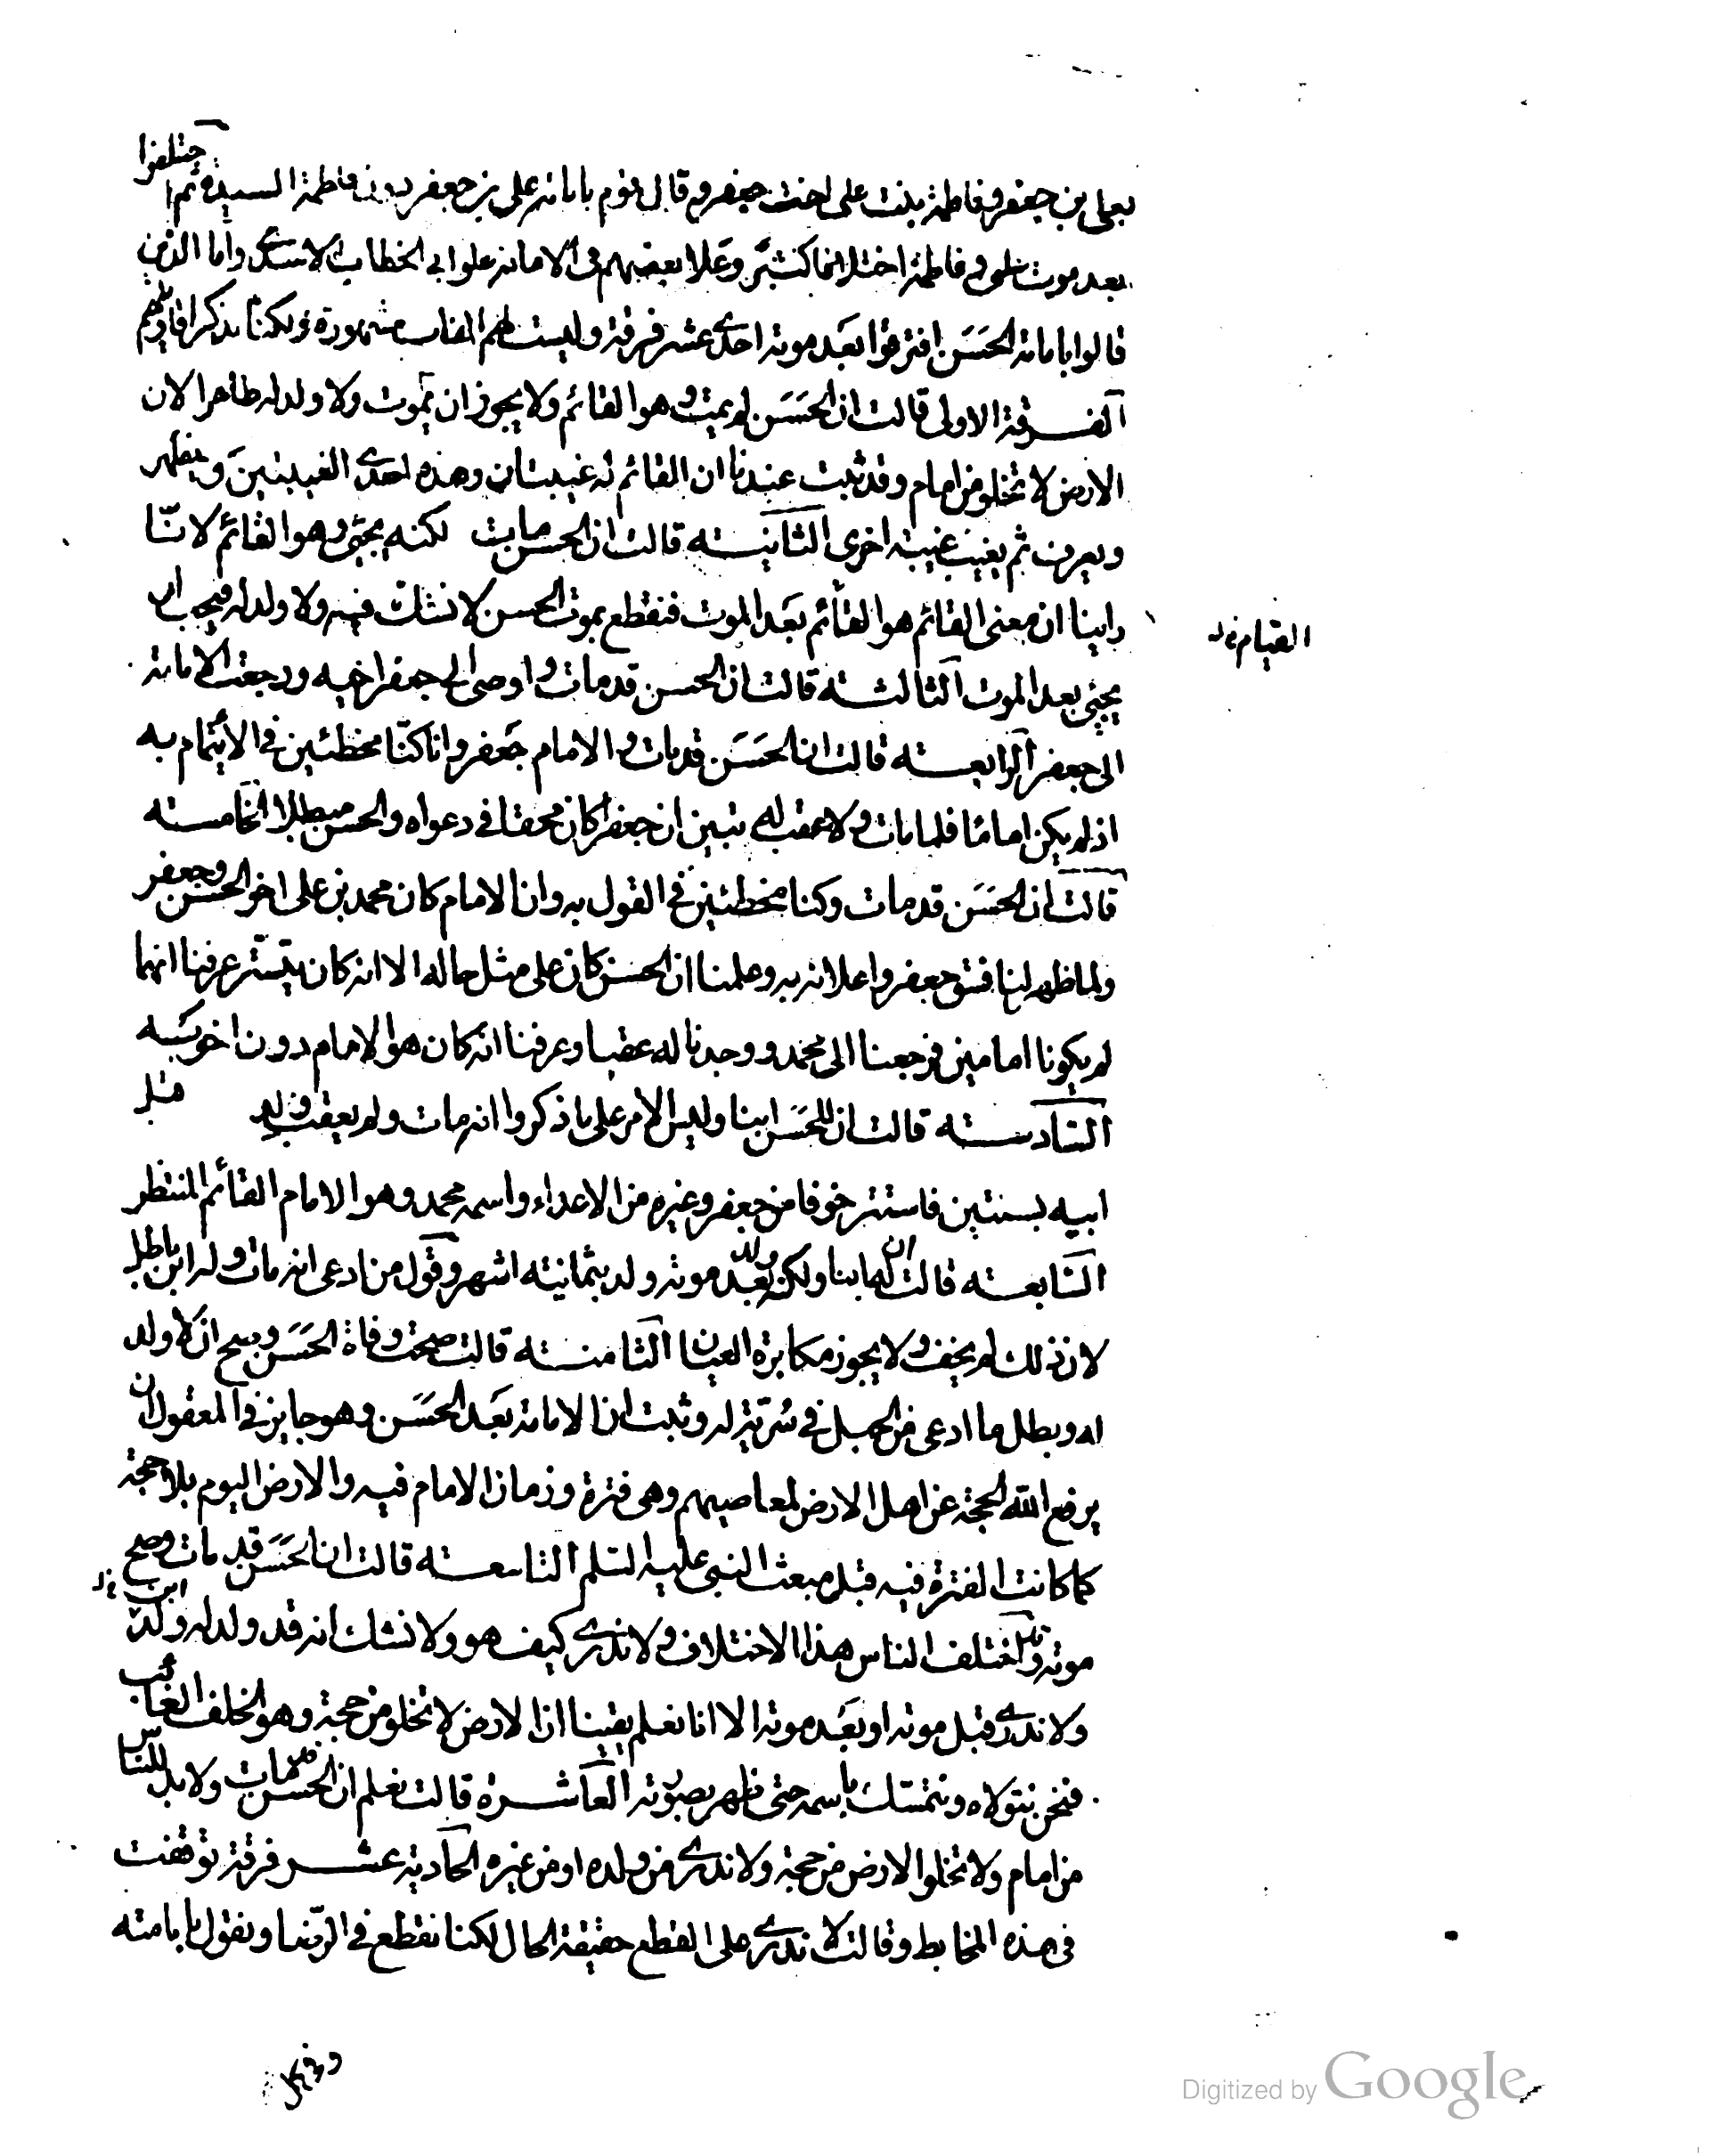 بعلي بن جعفر وفاطمة بنت علي اخت جعفر وقال قوم بامامة علي بن جعفر دون فاطمة السيدة ثم اختلفوا
بعد موت علي وفاطمة اختلافا كثيرا وغلا بعضهم في الامامة غلو ابي الخطاب الاسدي واما الذين
قالوا بامامة الحسن افترقوا بعد موته احدى عشر فرقة وليست لهم القاب مشهورة ولكنا نذكر اقاويلهم
الفرقة الاولى قالت ان الحسن لم يمت وهو القائم ولا يجوز ان يموت ولا ولد له ظاهرا لان
الارض لا تخلو من امام وقد ثبت عندنا ان القائم له غيبتان وهذه احدى الغيبتين وسيظهر
ويعرف ثم يغيب غيبة اخرى الثانية قالت ان الحسن مات لكنه يحيى وهو القائم لانا
راينا ان معنى القائم هو القائم بعد الموت فنقطع بموت الحسن لا نشك فيه ولا ولد له فيجب ان
القيام نه
يحيى بعد الموت الثالثة قالت ان الحسن قد مات واوصى الى جعفر اخيه ورجعت الامامة
الى جعفر الرابعة قالت ان الحسن قد مات والامام جعفر وانا كنا مخطئين في الائتمام به
اذ لم يكن اماما فلما مات ولا عقب له تبين ان جعفر كان محقا في دعواه والحسن مبطلا الخامسة
قالت ان الحسن قد مات وكنا مخطئين في القول به وان الامام كان محمد بن علي اخو الحسن وجعفر
ولما ظهر لنا فسق جعفر واعلانه به وعلمنا ان الحسن كان على مثل حاله الا انه كان يتستر عرفنا انهما
لم يكونا امامين فرجعنا الى محمد ووجدنا له عقبا وعرفنا انه كان هو الامام دون اخويه
السادسة قالت ان للحسن ابنا وليس الامر على ما ذكروا انه مات ولم يعقب ولد قبل
ابيه بسنتين فاستتر خوفا من جعفر وغيره من الاعداء واسمه محمد وهو الامام القائم المنتظر
السابعة قالت ان له ابنا ولكنه ولد بعد موته ولد بثمانية اشهر وقول من ادعى انه مات وله ابن باطل
لان ذلك لم يخف ولا يجوز مكابرة العيان الثامنة قالت صحت وفاة الحسن وصح ان لا ولد
له وبطل ما ادعى من الحبل في سرية له وثبت ان لا امامة بعد الحسن وهو جايز في المعقول ان
يرفع الله الحجة عن اهل الارض لمعاصيهم وهي فترة وزمان لا امام فيه والارض اليوم بلا حجة
كما كانت الفترة فيه قبل مبعث النبي عليه السلم التاسعة قالت ان الحسن قد مات وصح
موته وقد اختلف الناس هذا الاختلاف ولا ندري كيف هو ولا نشك انه قد ولد له ولد ابن
ولا ندري قبل موته او بعد موته الا انا نعلم يقينا ان الارض لا تخلو من حجة وهو الخلف الغائب
فنحن نتولاه ونتمسك باسمه حتى يظهر بصورته العاشرة قالت نعلم ان الحسن قد مات ولا بد للناس
من امام ولا تخلوا الارض من حجة ولا ندري من ولده او من غيره الحادية عشر فرقة توقفت
في هذه المخابط وقالت لا ندري على القطع حقيقة الحال لكنا نقطع في الرضا ونقول بامامته
وفي كل
Digitized by Google